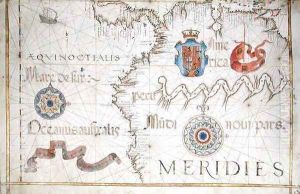 ÆQVINOCTIALIS
Ame
rica
Mare de sur.
peru
Oceanus australis
Mūdi noui pars.
MERIDIES